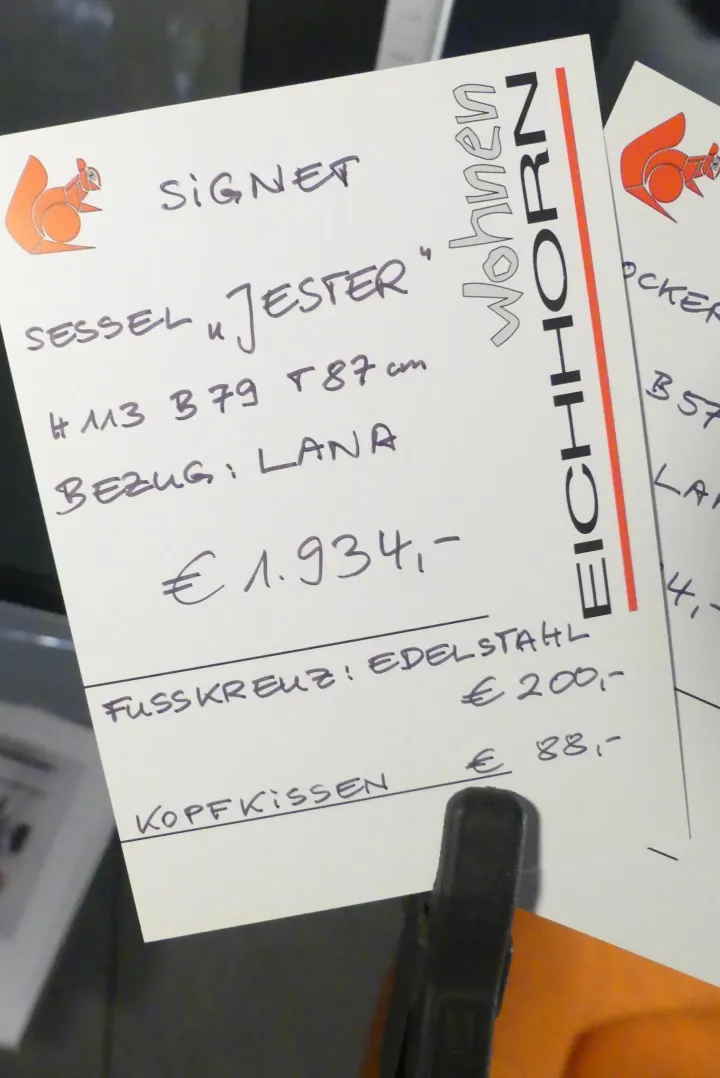 SiGNET
SESSEL „JESTER"
H 113 B 79 T 87 cm
BEZUG: LANA
€ 1.934,-
FUSSKREUZ: EDELSTAHL
€ 200,-
KOPFKiSSEN € 88,-
Wohnen
EICHHORN
B 57
4,-